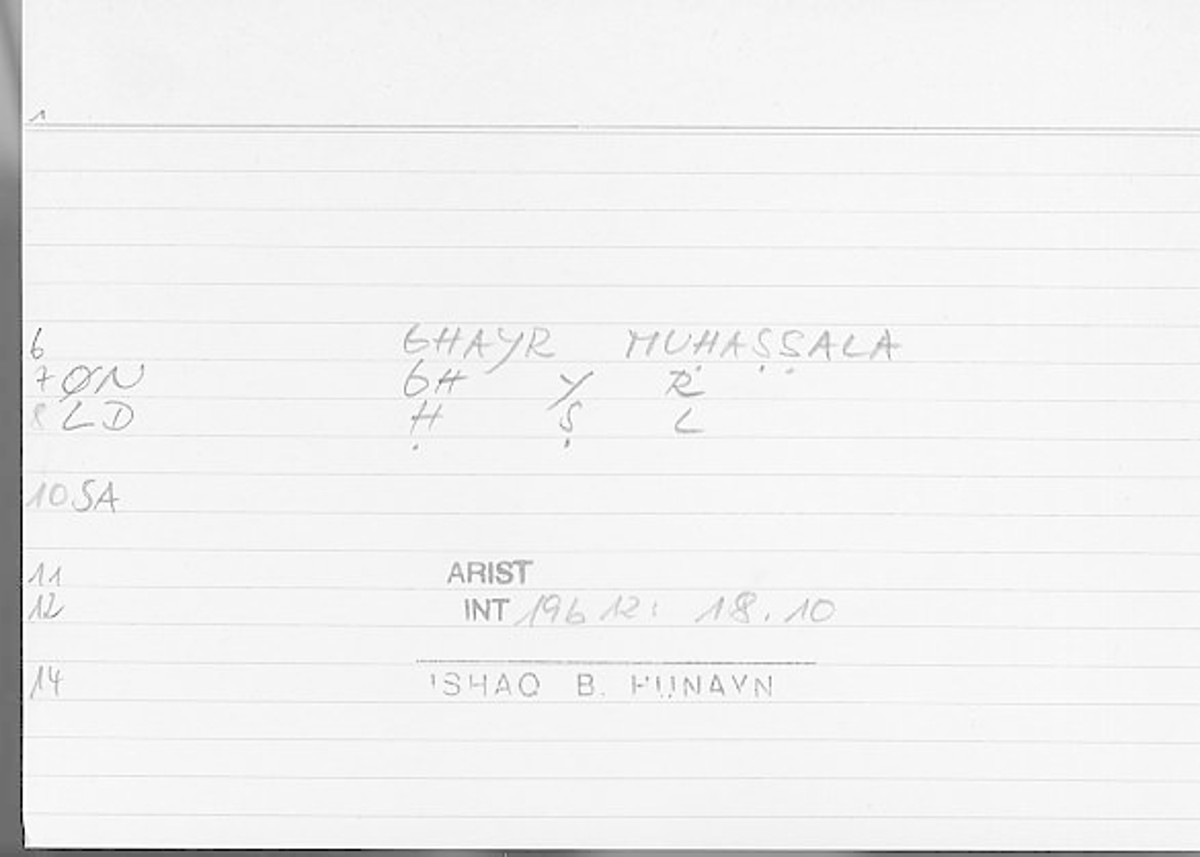 1
6 GHAYR MUḤAṢṢALA
7 ØN GH Y R
8 LD Ḥ Ṣ L
10 SA
11 ARIST
12 INT 19b 12: 18.10
14 ISHAQ B. ḤUNAYN